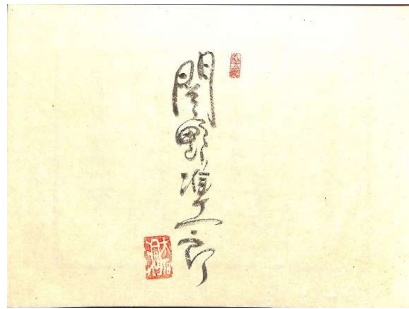 関野凖一郎